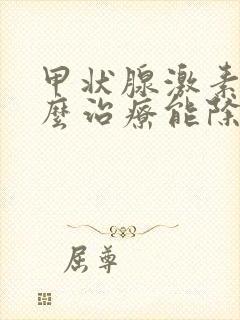 甲状腺激素
麼治療能除
屈尊